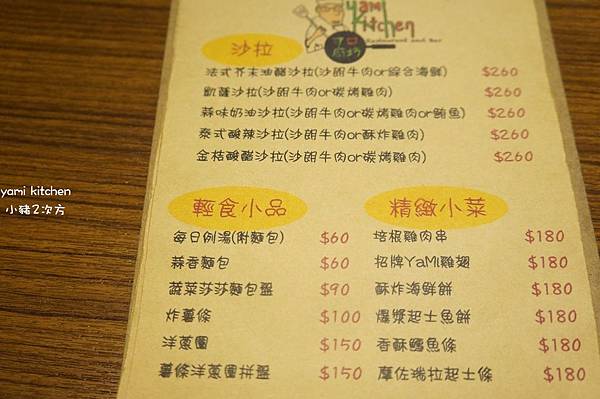 yami
Kitchen
Restaurant and Bar
沙拉
法式芥末油醋沙拉(沙朗牛肉or綜合海鮮) $260
凱薩沙拉(沙朗牛肉or碳烤雞肉) $260
蒜味奶油沙拉(沙朗牛肉or碳烤雞肉or鮪魚) $260
泰式酸辣沙拉(沙朗牛肉or酥炸雞肉) $260
金桔酸醋沙拉(沙朗牛肉or碳烤雞肉) $260
yami kitchen
小豬2次方
輕食小品
每日例湯(附麵包) $60
蒜香麵包 $60
蔬菜莎莎麵包盤 $90
炸薯條 $100
洋蔥圈 $150
薯條洋蔥圈拼盤 $150
精緻小菜
培根雞肉串 $180
招牌YaMi雞翅 $180
酥炸海鮮餅 $180
爆漿起士魚餅 $180
香酥鱈魚條 $180
摩佐瑞拉起士條 $180